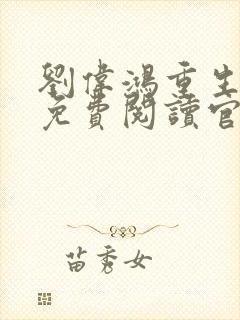 劉偉鴻重生
免費閱讀官
苗秀女